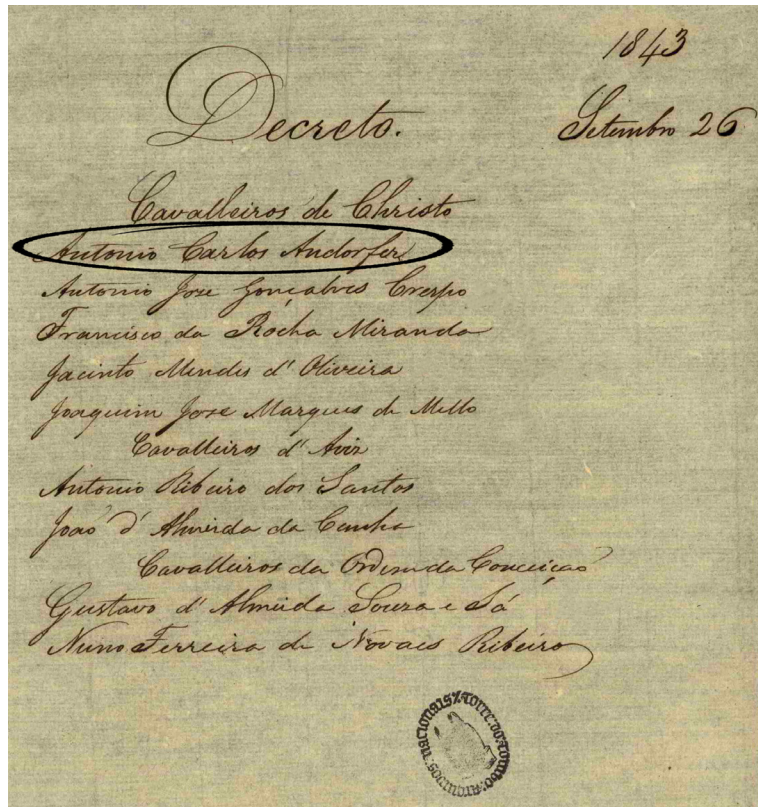 1843
Decreto. Setembro 26
Cavalleiros de Christo
Antonio Carlos Andorfer
Antonio Jose Gonçalves Crespo
Francisco da Rocha Miranda
Jacinto Mendes d' Oliveira
Joaquim Jose Marques de Mello
Cavalleiros d' Aviz
Antonio Ribeiro dos Santos
João d' Almeida da Cunha
Cavalleiros da Ordem da Conceição
Gustavo d' Almeida Souza e Sá
Nuno Ferreira de Novaes Ribeiro
Arquivos Nacionais Torre do Tombo